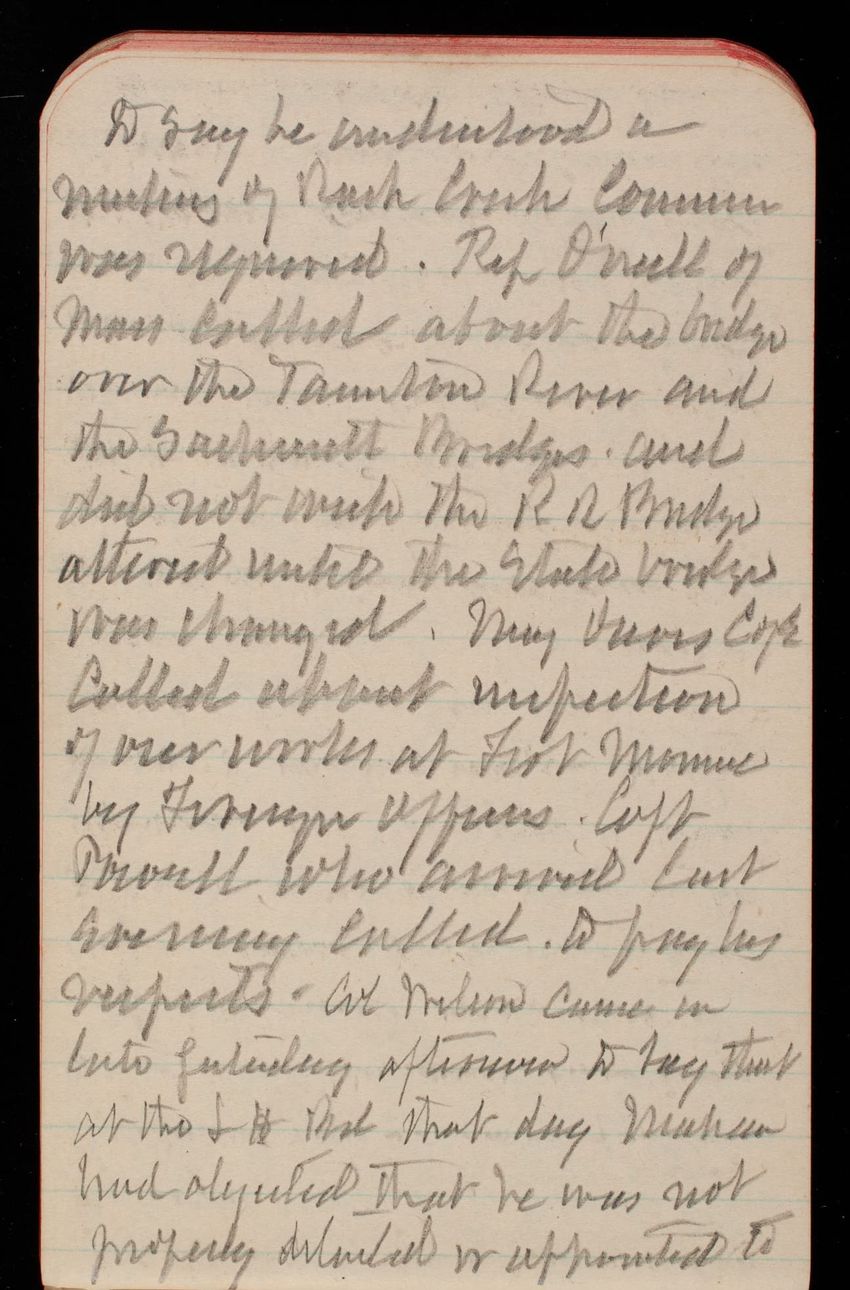 To say he understood a
meeting of Rock Creek Commn
was required. Rep O'neill of
Mass called about the bridge
over the Taunton River and
the Bridges. and
did not wish the R R Bridge
altered until the State bridge
was changed. Maj Davis CofE
Called about inspection
of our works at Fort Monroe
by Foreign Officers. Capt
Powell who arrived last
evening called. To pay his
respects. Col Wilson came in
late yesterday afternoon to say that
at the L H Bd that day Mahan
had objected that he was not
properly detailed or appointed to